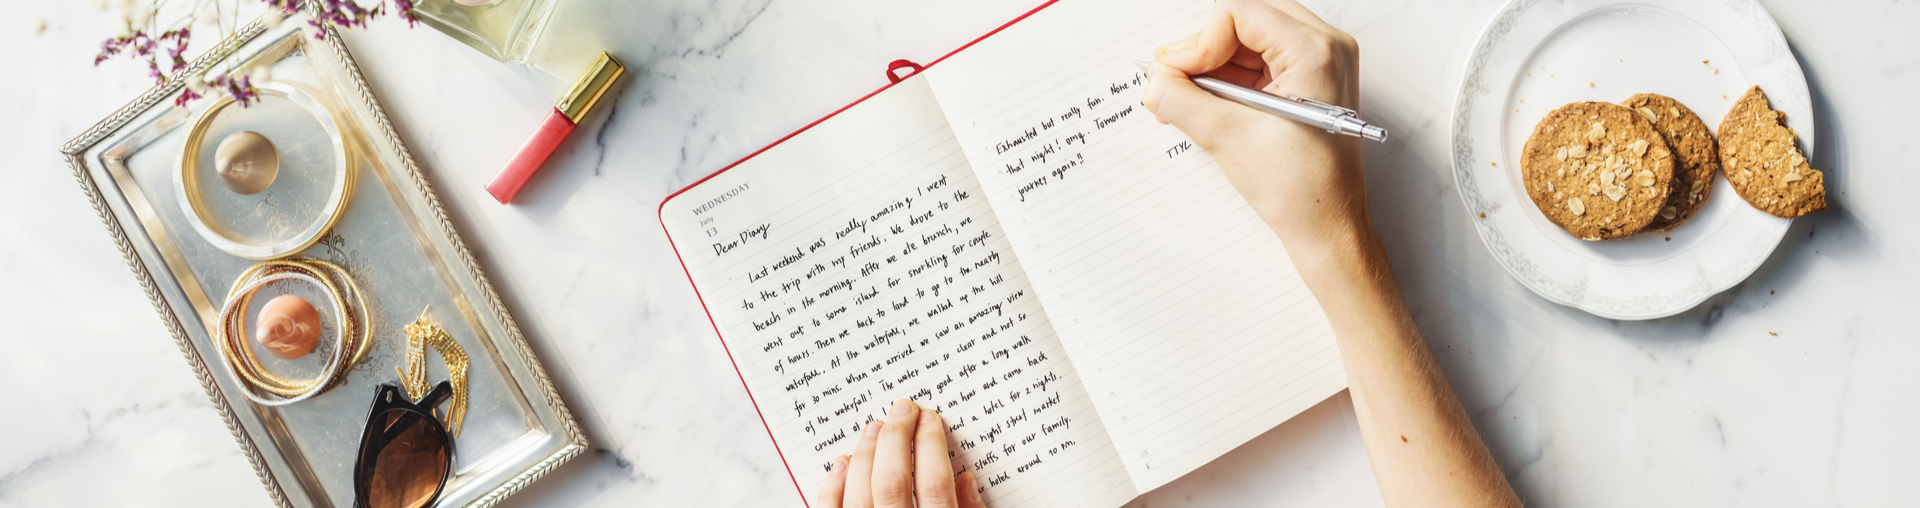 WEDNESDAY
July
13
Dear Diary
Last weekend was really amazing I went
to the trip with my friends. We drove to the
beach in the morning. After we ate brunch, we
went out to some island for snorkling for couple
of hours. Then we back to land to go to the nearly
waterfall. At the waterfall, we walked up the hill
for 30 mins. When we arrived we saw an amazing view
of the waterfall! The water was so clear and not so
crowded at all. really good after a long walk
an hour and came back
rent a hotel for 2 nights.
the night street market
stuffs for our family.
hotel around 10 pm.
Exhausted but really fun. None of
that night! omg. Tomorrow
journey again!!
TTYL